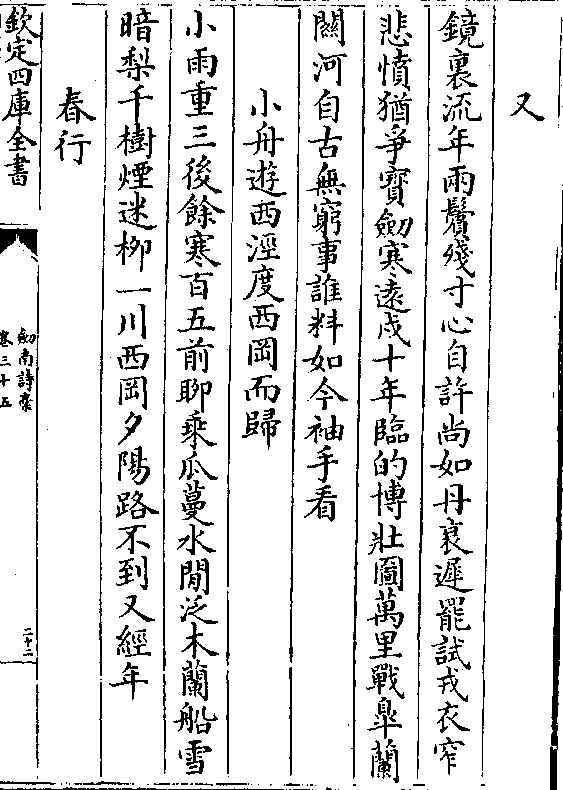 又
鏡裏流年兩鬢殘寸心自許尚如丹衰遲罷試戎衣窄
悲憤猶爭寶劒寒遠戍十年臨的博壯圖萬里戰臯蘭
關河自古無窮事誰料如今袖手看
小舟遊西涇度西岡而歸
小雨重三後餘寒百五前聊乘瓜蔓水閒泛木蘭船雪
暗梨千樹煙迷柳一川西岡夕陽路不到又經年
春行
欽定四庫全書
劒南詩稾
卷三十五
二十二